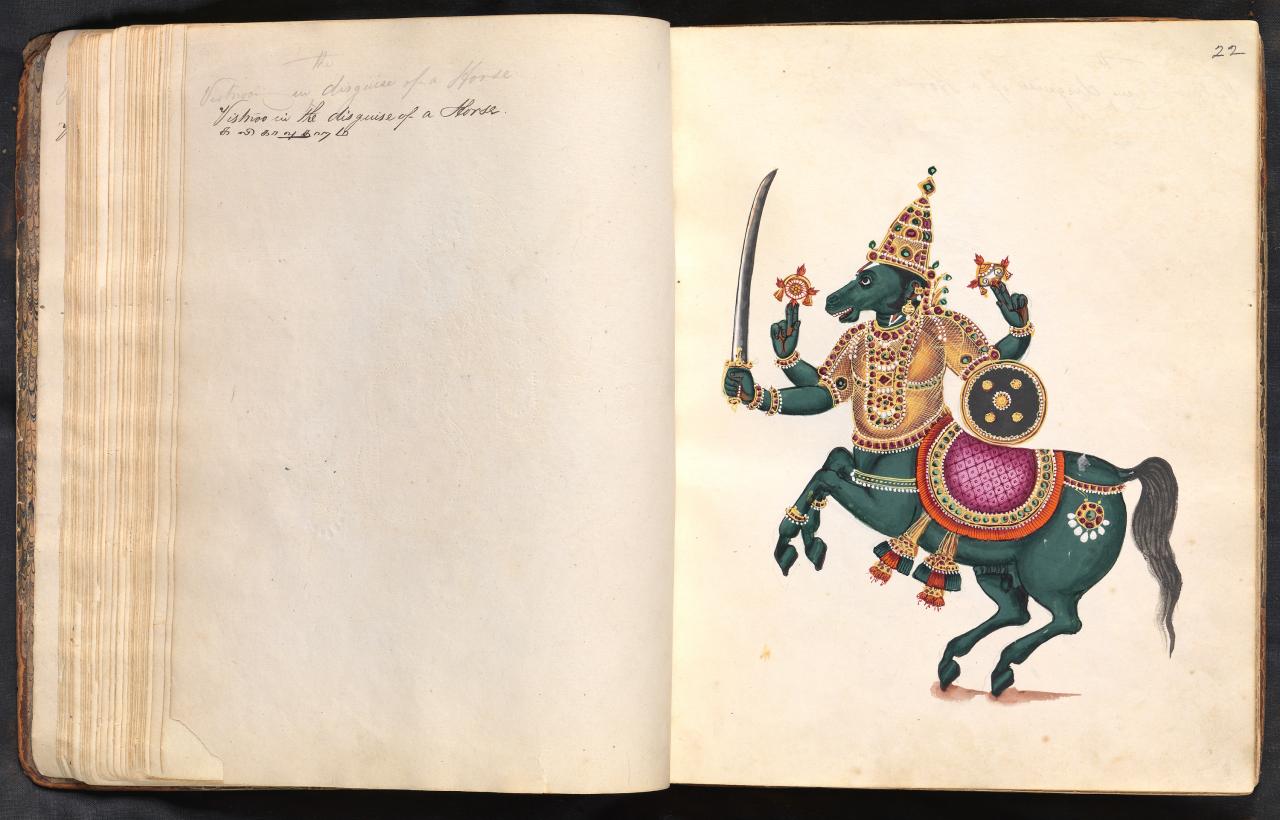 the
Vishnoo in disguise of a Horse
Vishnoo in the disguise of a Horse.
22